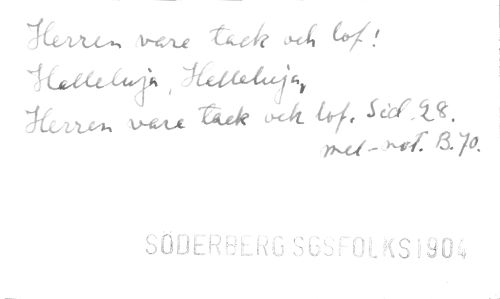 Herren vare tack och lof!
Halleluja, Helleluja,
Herren vare tack och lof. Sid. 28.
mel-not. B.70.
SÖDERBERG SGSFOLKS1904